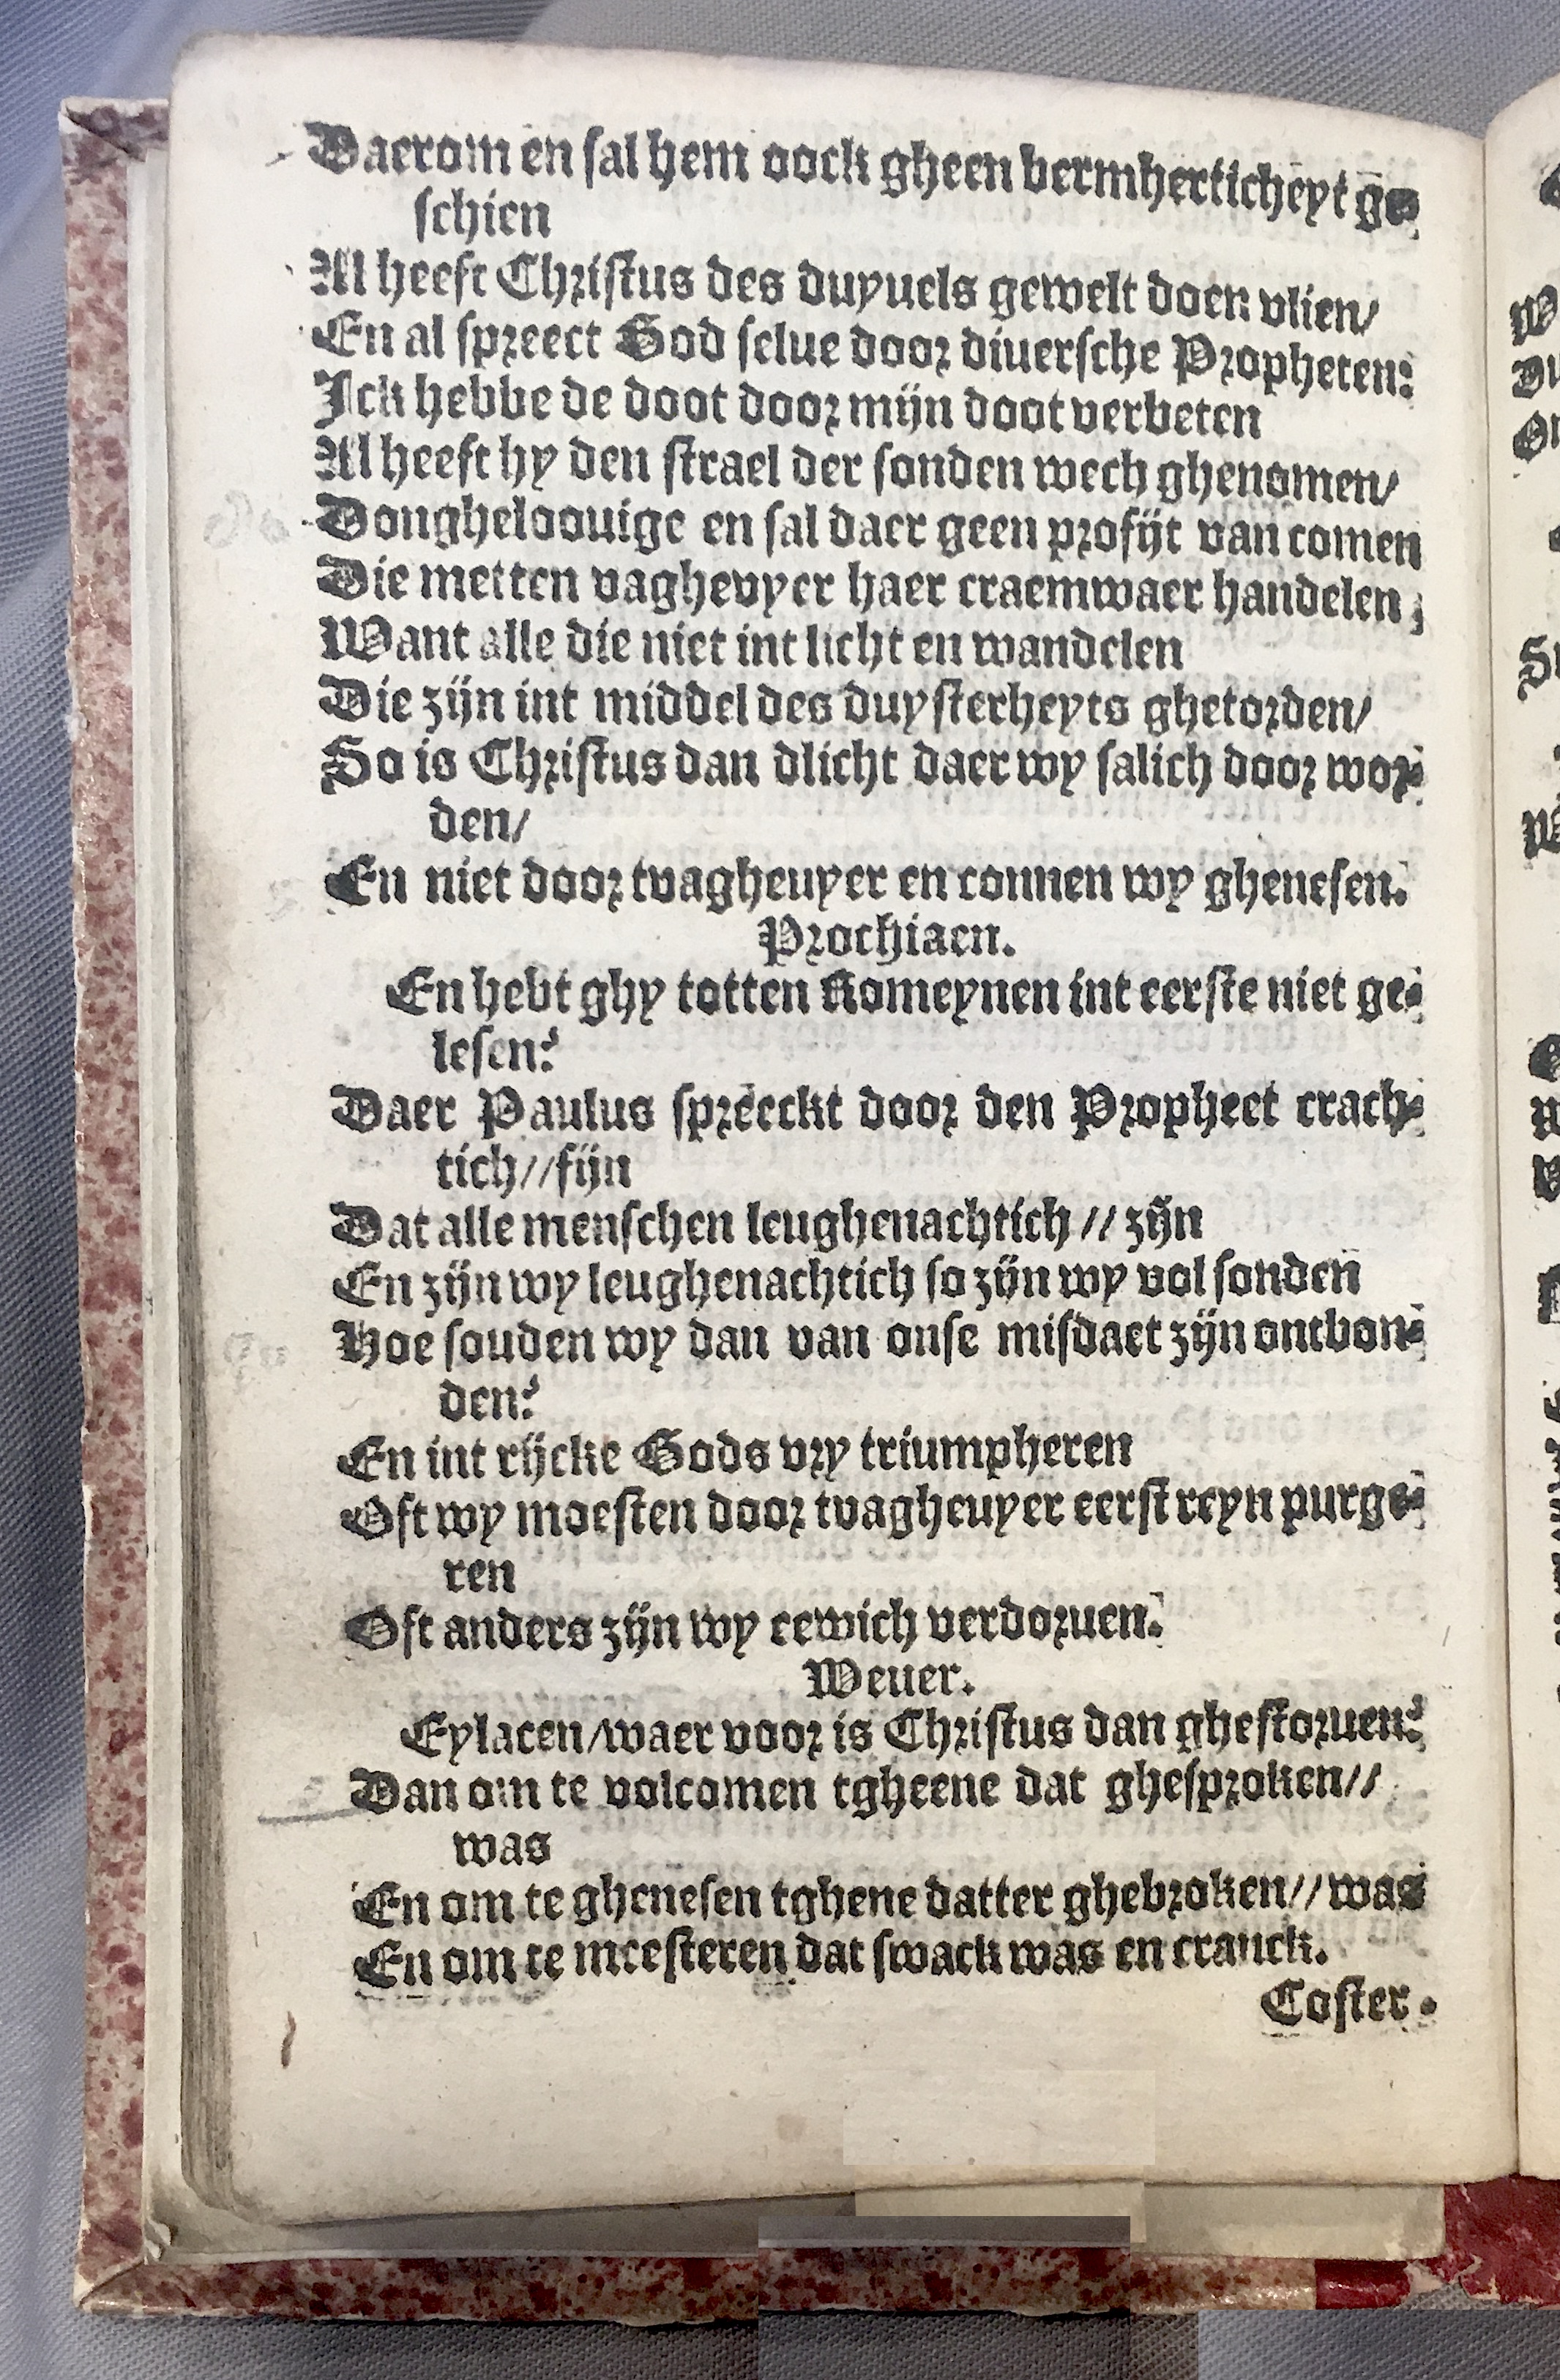 Daerom en sal hem oock gheen bermherticheyt ge-
schien
Al heeft Christus des duyuels gewelt doen vlien/
En al spreect God selue door diuersche Propheten:
Ick hebbe de doot door mijn doot verbeten
Al heeft hy den strael der sonden wech ghenomen/
Dongheloouige en sal daer geen profijt van comen
Die metten vaghevyer haer craemwaer handelen;
Want alle die niet int licht en wandelen
Die zijn int middel des duysterheyts ghetorden/
So is Christus dan dlicht daer wy salich door wor-
den/
En niet door tvagheuyer en connen wy ghenesen.
Prochiaen.
En hebt ghy totten Romeynen int eerste niet ge-
lesen?
Daer Paulus spreeckt door den Propheet crach-
tich//fijn
Dat alle menschen leughenachtich // zijn
En zijn wy leughenachtich so zijn wy vol sonden
Hoe souden wy dan van onse misdaet zijn ontbon-
den?
En int rijcke Gods vry triumpheren
Oft wy moesten door tvagheuyer eerst reyn purge-
ren
Oft anders zijn wy eewich verdoruen.
Weuer.
Eylacen/waer voor is Christus dan ghestoruen?
Dan om te volcomen tgheene dat ghesproken//
was
En om te ghenesen tghene datter ghebroken// was
En om te meesteren dat swack was en cranck.
Coster.